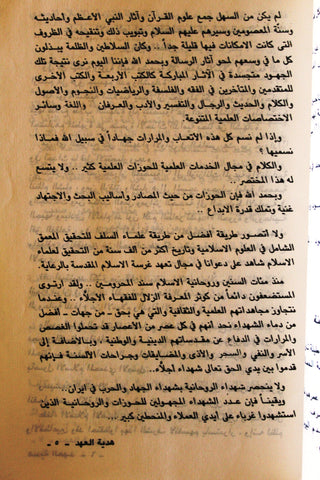 لم يكن من السهل جمع علوم القرآن وآثار النبي الأعظم وأحاديثه
وسنّة المعصومين وسيرهم عليهم السلام وتبويب ذلك وتنقيحه في الظروف
التي كانت الامكانات فيها قليلة جداً.. وكان السلاطين والظلمة يبذلون
كل ما في وسعهم لمحو آثار الرسالة وبحمد الله فإننا اليوم نرى نتيجة تلك
الجهود متجسدة في الآثار المباركة كالكتب الأربعة والكتب الأخرى
للمتقدمين والمتأخرين في الفقه والفلسفة والرياضيات والنجوم والاصول
والكلام والحديث والرجال والتفسير والأدب والعرفان واللغة وسائر
الاختصاصات العلمية المتنوعة.
وإذا لم نسم كل هذه الاتعاب والمرارات جهاداً في سبيل الله فماذا
نسميها؟
والكلام في مجال الخدمات العلمية للحوزات العلمية كثير .. ولا يتسع
له هذا المختصر ..
وبحمد الله فإن الحوزات من حيث المصادر وأساليب البحث والاجتهاد
غنية وتملك قدرة الابداع ..
ولا أتصور طريقة أفضل من طريقة علماء السلف للتحقيق المعمق
الشامل في العلوم الاسلامية وتاريخ أكثر من ألف سنة من التحقيق لعلماء
الاسلام شاهد على دعوانا في مجال تعهد غرسة الاسلام المقدسة بالرعاية.
منذ مئات السنين وروحانية الاسلام سند المحرومين .. ولقد ارتوى
المستضعفون دائماً من كوثر المعرفة الزلال للفقهاء الأجلّاء .. وعندما
نتجاوز مجاهداتهم العلمية والثقافية والتي هي بحق - من جهات - أفضل
من دماء الشهداء نجد أنهم في كل عصر من الأعصار قد تحملوا الغصص
والمرارات في الدفاع عن مقدساتهم الدينية والوطنية، وبالاضافة إلى
الأسر والنفي والسجر والأذى والمضايقات وجراحات الألسنة فإنهم
قدموا بين يدي الحق تعالى شهداء أجلّاء..
ولا ينحصر شهداء الروحانية بشهداء الجهاد والحرب في ايران..
ويقيناً فإن عدد الشهداء المجهولين للحوزات والروحانية الذين
استشهدوا غرباء على أيدي العملاء والمنحطين كبير ...
هدية العهد - ٥ -